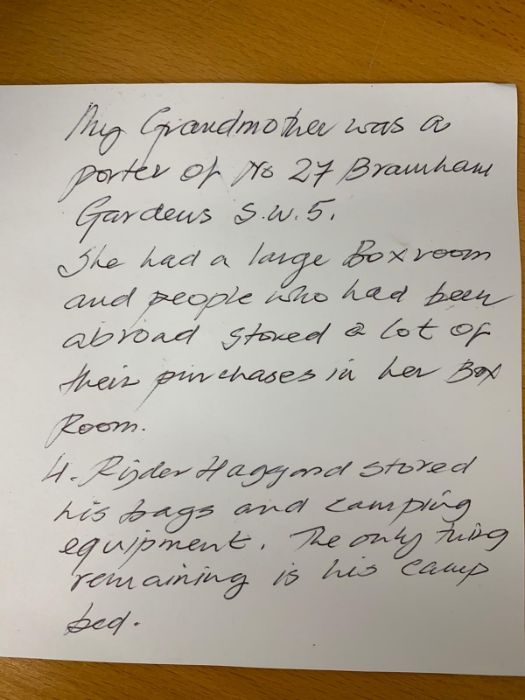 My Grandmother was a
porter of No 27 Bramham
Gardens S.W.5.
She had a large Boxroom
and people who had been
abroad stored a lot of
their purchases in her Box
Room.
H. Rider Haggard stored
his bags and camping
equipment. The only thing
remaining is his camp
bed.